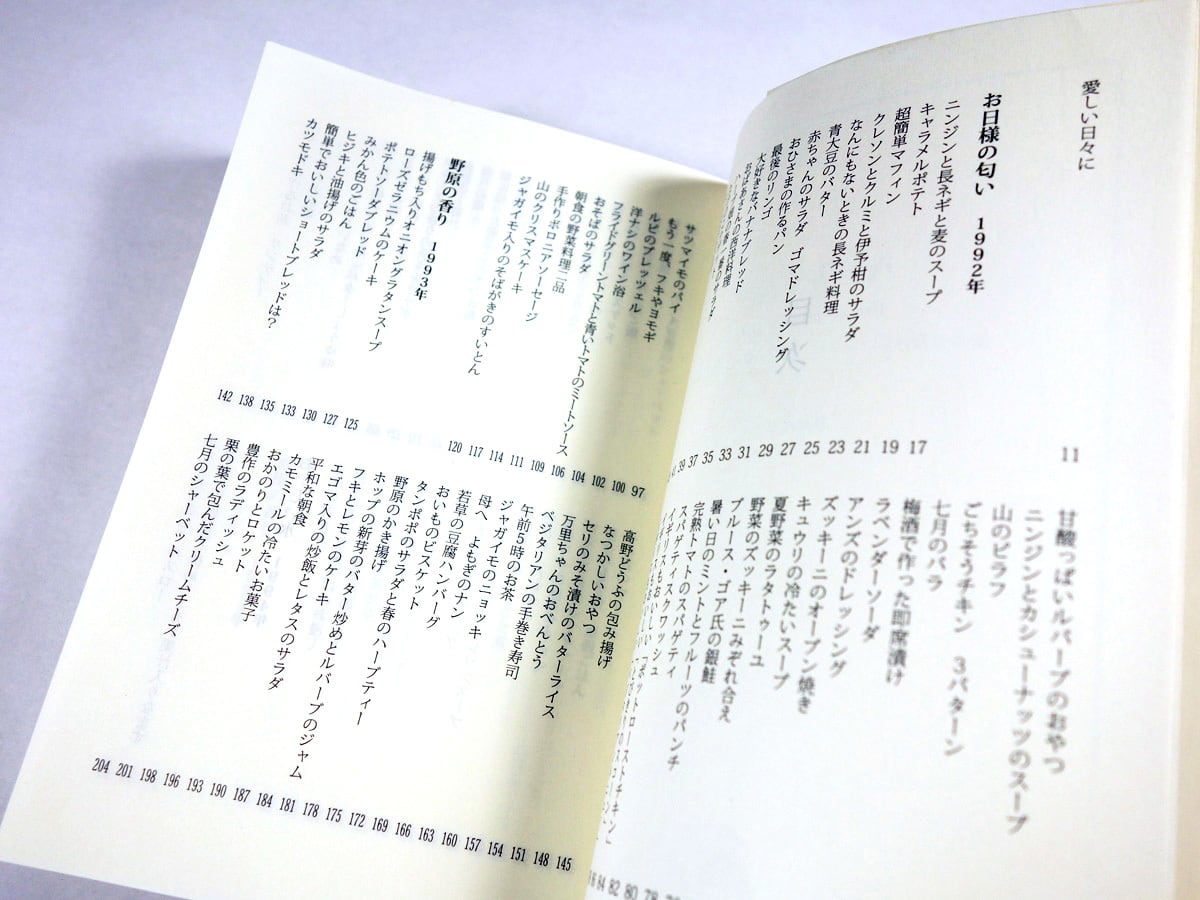 愛しい日々に 11
お日様の匂い 1992年
ニンジンと長ネギと麦のスープ 17
キャラメルポテト 19
超簡単マフィン 21
クレソンとクルミと伊予柑のサラダ 23
なんにもないときの長ネギ料理 25
青大豆のバター 27
赤ちゃんのサラダ ゴマドレッシング 29
おひさまの作るパン 31
最後のリンゴ 33
大好きなバナナブレッド 35
おばあさんの西洋料理 37
39
甘酸っぱいルバーブのおやつ
ニンジンとカシューナッツのスープ
山のピラフ
ごちそうチキン 3パターン
七月のバラ
梅酒で作った即席漬け
ラベンダーソーダ
アンズのドレッシング
ズッキーニのオーブン焼き
キュウリの冷たいスープ
夏野菜のラタトゥーユ
野菜のズッキーニみぞれ合え
ブルース・ゴア氏の銀鮭
暑い日のミントとフルーツのパンチ
完熟トマトのスパゲティ
スパゲティスクワッシュ
84 82 80 78
目次
サツマイモのパイ 97
もう一度、フキやヨモギ 100
ルビのプレッツェル 102
洋ナシのワイン浴 104
フライドグリーントマトと青いトマトのミートソース 106
おそばのサラダ 109
朝食の野菜料理二品 111
手作りボロニアソーセージ 114
山のクリスマスケーキ 117
ジャガイモ入りのそばがきのすいとん 120
野原の香り 1993年
揚げもち入りオニオングラタンスープ 125
ローズゼラニウムのケーキ 127
ポテトソーダブレッド 130
みかん色のごはん 133
ヒジキと油揚げのサラダ 135
簡単でおいしいショートブレッドは? 138
カツモドキ 142
高野どうふの包み揚げ 145
なつかしいおやつ 148
セリのみそ漬けのバターライス 151
万里ちゃんのおべんとう 154
ベジタリアンの手巻き寿司 157
午前5時のお茶 160
ジャガイモのニョッキ 163
母へ よもぎのナン 166
若草の豆腐ハンバーグ 169
おいものビスケット 172
タンポポのサラダと春のハーブティー 175
野原のかき揚げ 178
ホップの新芽のバター炒めとルバーブのジャム 181
フキとレモンのケーキ 184
エゴマ入りの炒飯とレタスのサラダ 187
平和な朝食 190
カモミールの冷たいお菓子 193
おかのりとロケット 196
豊作のラディッシュ 198
栗の葉で包んだクリームチーズ 201
七月のシャーベット 204